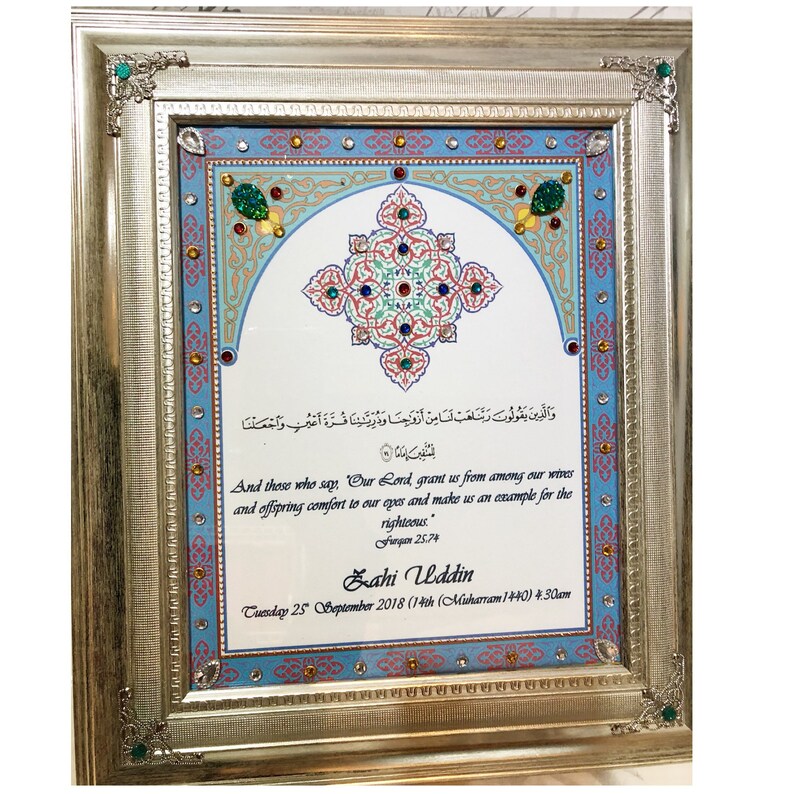 وَٱلَّذِينَ يَقُولُونَ رَبَّنَا هَبْ لَنَا مِنْ أَزْوَٰجِنَا وَذُرِّيَّٰتِنَا قُرَّةَ أَعْيُنٍ وَٱجْعَلْنَا
لِلْمُتَّقِينَ إِمَامًا ٧٤
And those who say, "Our Lord, grant us from among our wives
and offspring comfort to our eyes and make us an example for the
righteous."
Furqan 25:74
Zahi Uddin
Tuesday 25th September 2018 (14th (Muharram1440) 4:30am